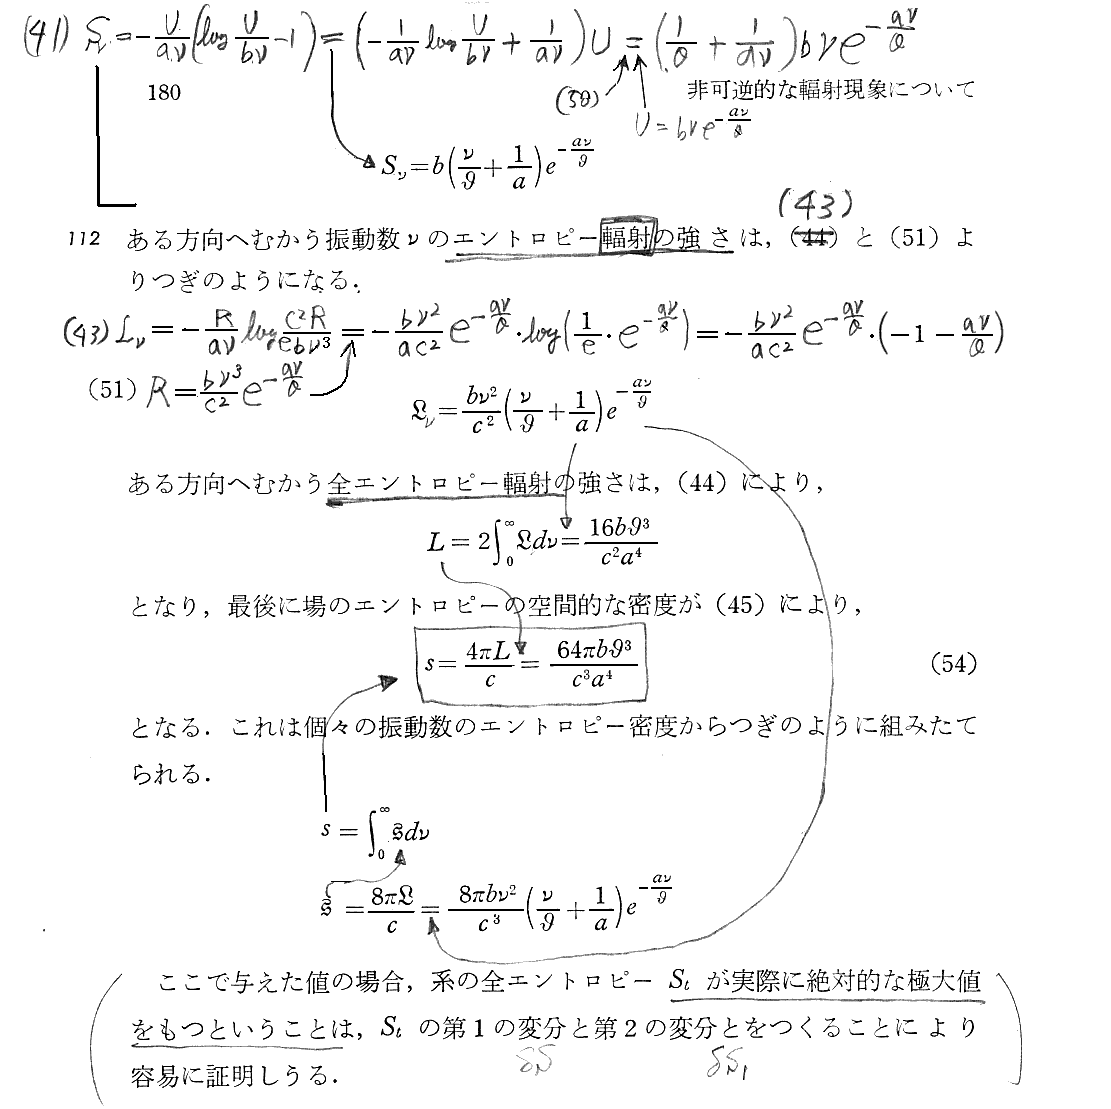 (41) S_ν = -U/aν (log U/bν - 1) = (-1/aν log U/bν + 1/aν) U = (1/θ + 1/aν) bν e^{-aν/θ}
180 非可逆的な輻射現象について
(50)
U = bν e^{-aν/θ}
S_ν = b(ν/ϑ + 1/a) e^{-aν/ϑ}
(43)
112 ある方向へむかう振動数 ν のエントロピー輻射の強さは,(44) と (51) よ
りつぎのようになる.
(43) L_ν = -R/aν log c²R/ebν³ = -bν²/ac² e^{-aν/θ}・log(1/e・e^{-aν/θ}) = -bν²/ac² e^{-aν/θ}・(-1 - aν/θ)
(51) R = bν³/c² e^{-aν/θ}
𝔏_ν = bν²/c² (ν/ϑ + 1/a) e^{-aν/ϑ}
ある方向へむかう全エントロピー輻射の強さは,(44) により,
L = 2∫₀^∞ 𝔏dν = 16bϑ³/c²a⁴
となり,最後に場のエントロピーの空間的な密度が (45) により,
s = 4πL/c = 64πbϑ³/c³a⁴ (54)
となる.これは個々の振動数のエントロピー密度からつぎのように組みたて
られる.
s = ∫₀^∞ 𝔰dν
𝔰 = 8π𝔏/c = 8πbν²/c³ (ν/ϑ + 1/a) e^{-aν/ϑ}
ここで与えた値の場合,系の全エントロピー S_t が実際に絶対的な極大値
をもつということは,S_t の第1の変分と第2の変分とをつくることにより
容易に証明しうる.